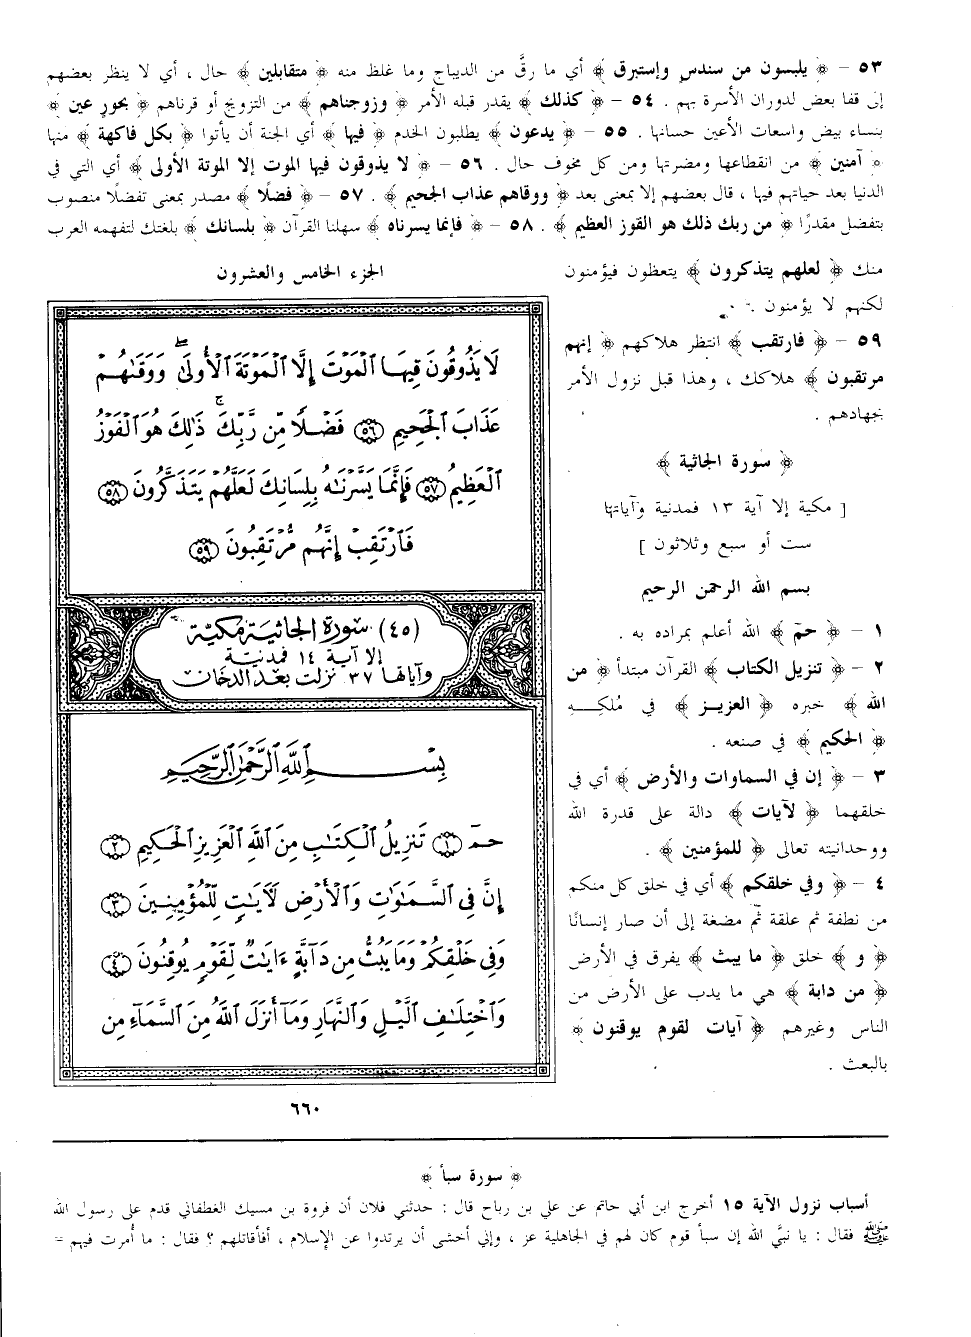 ٥٣ – ﴿ يلبسون من سندس وإستبرق ﴾ أي ما رقَّ من الديباج وما غلظ منه ﴿ متقابلين ﴾ حال ، أي لا ينظر بعضهم
إلى قفا بعض لدوران الأسرة بهم . ٥٤ – ﴿ كذلك ﴾ يقدر قبله الأمر ﴿ وزوجناهم ﴾ من التزويج أو قرناهم ﴿ بحور عين ﴾
بنساء بيض واسعات الأعين حسانها . ٥٥ – ﴿ يدعون ﴾ يطلبون الخدم ﴿ فيها ﴾ أي الجنة أن يأتوا ﴿ بكل فاكهة ﴾ منها
﴿ آمنين ﴾ من انقطاعها ومضرتها ومن كل مخوف حال . ٥٦ – ﴿ لا يذوقون فيها الموت إلا الموتة الأولى ﴾ أي التي في
الدنيا بعد حياتهم فيها ، قال بعضهم إلا بمعنى بعد ﴿ ووقاهم عذاب الجحيم ﴾ . ٥٧ – ﴿ فضلًا ﴾ مصدر بمعنى تفضلًا منصوب
بتفضل مقدرًا ﴿ من ربك ذلك هو الفوز العظيم ﴾ . ٥٨ – ﴿ فإنما يسرناه ﴾ سهلنا القرآن ﴿ بلسانك ﴾ بلغتك لتفهمه العرب
منك ﴿ لعلهم يتذكرون ﴾ يتعظون فيؤمنون
لكنهم لا يؤمنون .
٥٩ – ﴿ فارتقب ﴾ انتظر هلاكهم ﴿ إنهم
مرتقبون ﴾ هلاكك ، وهذا قبل نزول الأمر
بجهادهم .
﴿ سورة الجاثية ﴾
[ مكية إلا آية ١٣ فمدنية وآياتها
ست أو سبع وثلاثون ]
بسم الله الرحمن الرحيم
١ – ﴿ حمٓ ﴾ الله أعلم بمراده به .
٢ – ﴿ تنزيل الكتاب ﴾ القرآن مبتدأ ﴿ من
الله ﴾ خبره ﴿ العزيز ﴾ في مُلكِه
﴿ الحكيم ﴾ في صنعه .
٣ – ﴿ إن في السماوات والأرض ﴾ أي في
خلقهما ﴿ لآيات ﴾ دالة على قدرة الله
ووحدانيته تعالى ﴿ للمؤمنين ﴾ .
٤ – ﴿ وفي خلقكم ﴾ أي في خلق كل منكم
من نطفة ثم علقة ثم مضغة إلى أن صار إنسانًا
﴿ و ﴾ خلق ﴿ ما يبث ﴾ يفرق في الأرض
﴿ من دابة ﴾ هي ما يدب على الأرض من
الناس وغيرهم ﴿ آيات لقوم يوقنون ﴾
بالبعث .
الجزء الخامس والعشرون
لَا يَذُوقُونَ فِيهَا ٱلْمَوْتَ إِلَّا ٱلْمَوْتَةَ ٱلْأُولَىٰ ۖ وَوَقَىٰهُمْ
عَذَابَ ٱلْجَحِيمِ ٥٦ فَضْلًا مِّن رَّبِّكَ ۚ ذَٰلِكَ هُوَ ٱلْفَوْزُ
ٱلْعَظِيمُ ٥٧ فَإِنَّمَا يَسَّرْنَٰهُ بِلِسَانِكَ لَعَلَّهُمْ يَتَذَكَّرُونَ ٥٨
فَٱرْتَقِبْ إِنَّهُم مُّرْتَقِبُونَ ٥٩
(٤٥) سُورَةُ الجَاثِيَةِ مَكيّة
إلا آية ١٤ فمدنيّة
وآياتها ٣٧ نزلت بعد الدخان
بِسْمِ ٱللَّهِ ٱلرَّحْمَٰنِ ٱلرَّحِيمِ
حمٓ ١ تَنزِيلُ ٱلْكِتَٰبِ مِنَ ٱللَّهِ ٱلْعَزِيزِ ٱلْحَكِيمِ ٢
إِنَّ فِى ٱلسَّمَٰوَٰتِ وَٱلْأَرْضِ لَءَايَٰتٍ لِّلْمُؤْمِنِينَ ٣
وَفِى خَلْقِكُمْ وَمَا يَبُثُّ مِن دَآبَّةٍ ءَايَٰتٌ لِّقَوْمٍ يُوقِنُونَ ٤
وَٱخْتِلَٰفِ ٱلَّيْلِ وَٱلنَّهَارِ وَمَآ أَنزَلَ ٱللَّهُ مِنَ ٱلسَّمَآءِ مِن
٦٦٠
﴿ سورة سبأ ﴾
أسباب نزول الآية ١٥ أخرج ابن أبي حاتم عن علي بن رباح قال : حدثني فلان أن فروة بن مسيك الغطفاني قدم على رسول الله
ﷺ فقال : يا نبيَّ الله إن سبأ قوم كان لهم في الجاهلية عز ، وإني أخشى أن يرتدوا عن الإسلام ، أفأقاتلهم ؟ فقال : ما أُمرت فيهم =